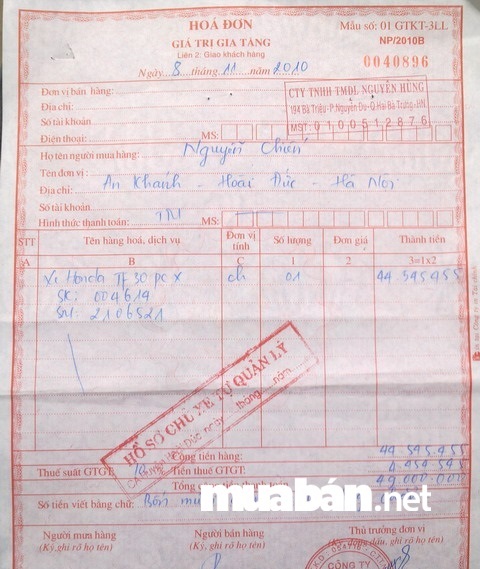 HOÁ ĐƠN
GIÁ TRỊ GIA TĂNG
Liên 2: Giao khách hàng
Ngày 8 tháng 11 năm 2010
Mẫu số: 01 GTKT-3LL
NP/2010B
0040896
Đơn vị bán hàng:
CTY TNHH TMDL NGUYỄN HÙNG
Địa chỉ:
194 Bà Triệu-P.Nguyễn Du-Q.Hai Bà Trưng-HN
Số tài khoản
MST: 0100512876
Điện thoại: MS:
Họ tên người mua hàng: Nguyễn Chiến
Tên đơn vị:
Địa chỉ: An Khánh - Hoài Đức - Hà Nội
Số tài khoản
Hình thức thanh toán: TM MS:
STT Tên hàng hoá, dịch vụ Đơn vị tính Số lượng Đơn giá Thành tiền
A B C 1 2 3=1x2
Xe Honda ch 01 44 545 455
SK: 004614
SM: 2106521
HỒ SƠ CHỦ XE TỰ QUẢN LÝ
ngày tháng năm
Cộng tiền hàng: 44 545 455
Thuế suất GTGT: 10 % Tiền thuế GTGT: 4 454 545
Tổng cộng tiền thanh toán 49 000 000
Số tiền viết bằng chữ: Bốn
muabán.net
Người mua hàng Người bán hàng Thủ trưởng đơn vị
(Ký, ghi rõ họ tên) (Ký, ghi rõ họ tên) (Ký, đóng dấu, ghi rõ họ tên)
CÔNG TY